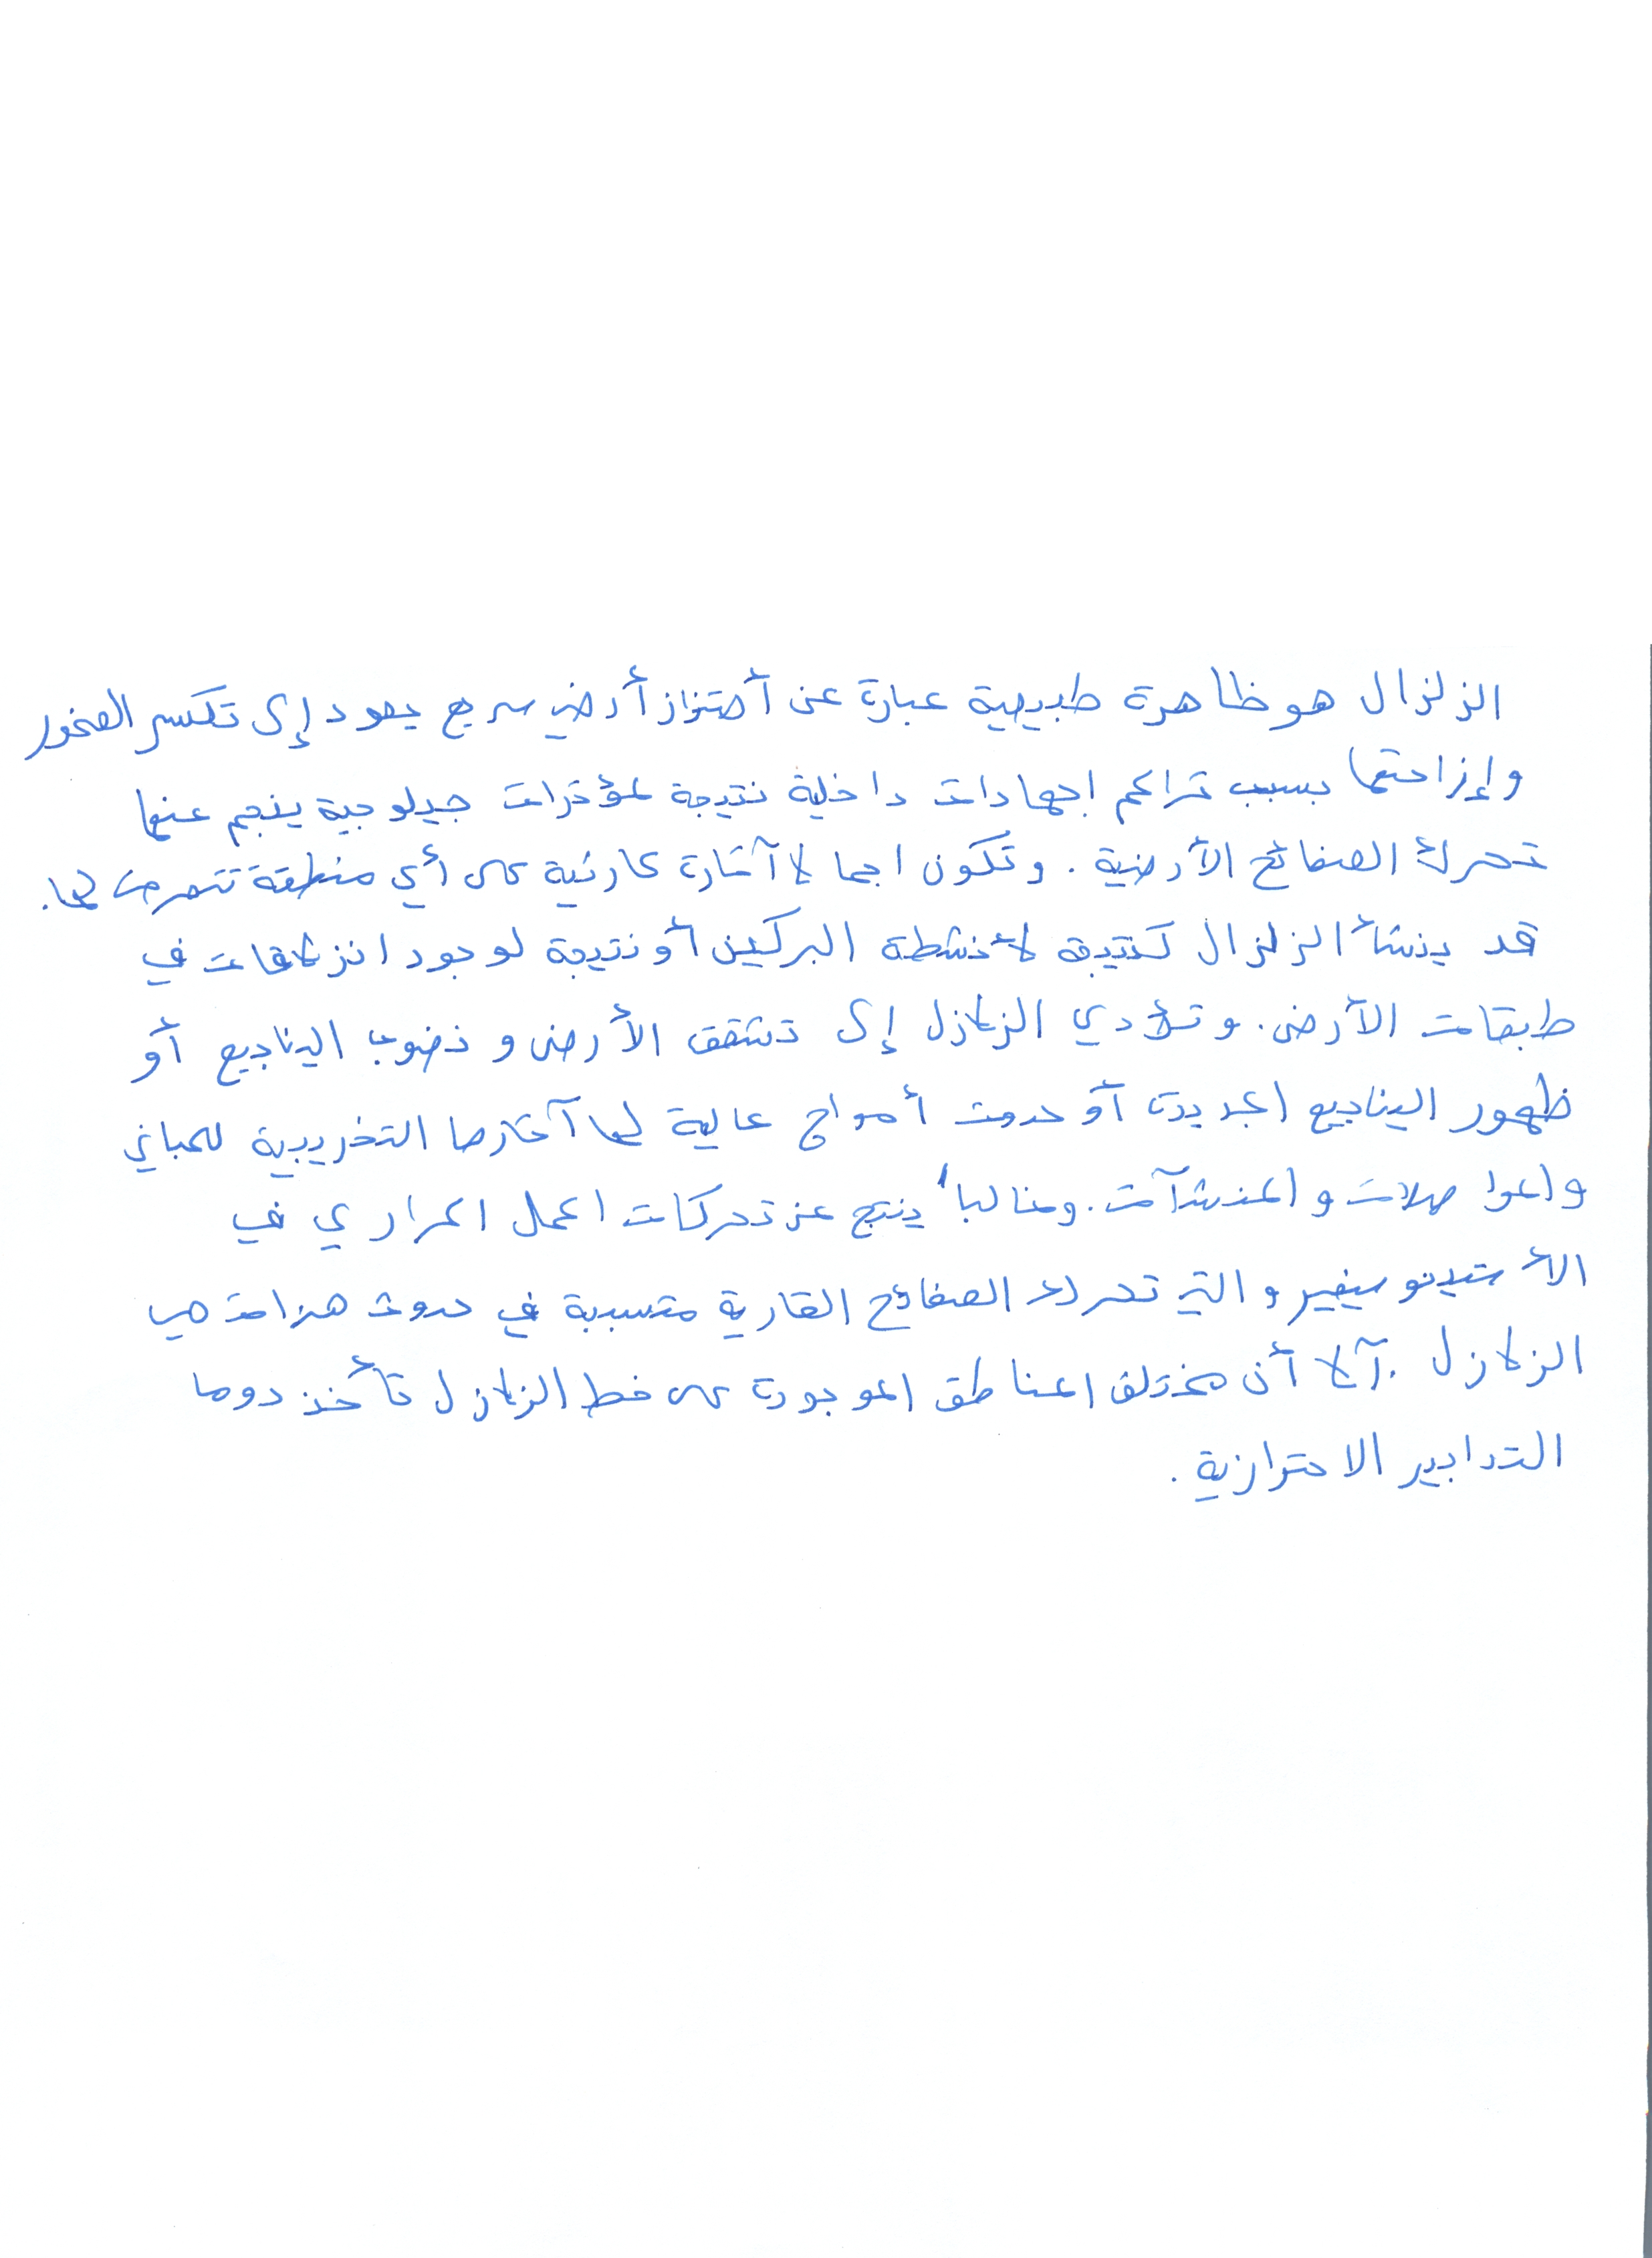 الزلزال هو ظاهرة طبيعية عبارة عن أهتزاز أرضي سريع يعود إلى تكسر الصخور
وإزاحتها بسبب تراكم اجهادات داخلية نتيجة لمؤثرات جيلوجية ينجم عنها
تحرك الصفائح الأرضية. وتكون اجمالا آثاره كارثية على أي منطقة تتعرض لها.
قد ينشأ الزلزال كنتيجة لأنشطة البركين أو نتيجة لوجود انزلاقات في
طبقات الأرض. وتؤدي الزلازل إلى تشقق الأرض و نضوب الينابيع أو
ظهور الينابيع الجديدة أو حدوث أمواج عالية لها آثارها التخريبية للمباني
والموا صلات و المنشآت. وغالبا ينتج عن تحركات الحمل الحراري في
الأستينوسفير والتي تحرك الصفائح القارية متسببة في حدوث هزات هي
الزلازل. آلا أن مختلف المناطق الموجودة على خط الزلازل تأخذ دوما
التدابير الاحترازية.